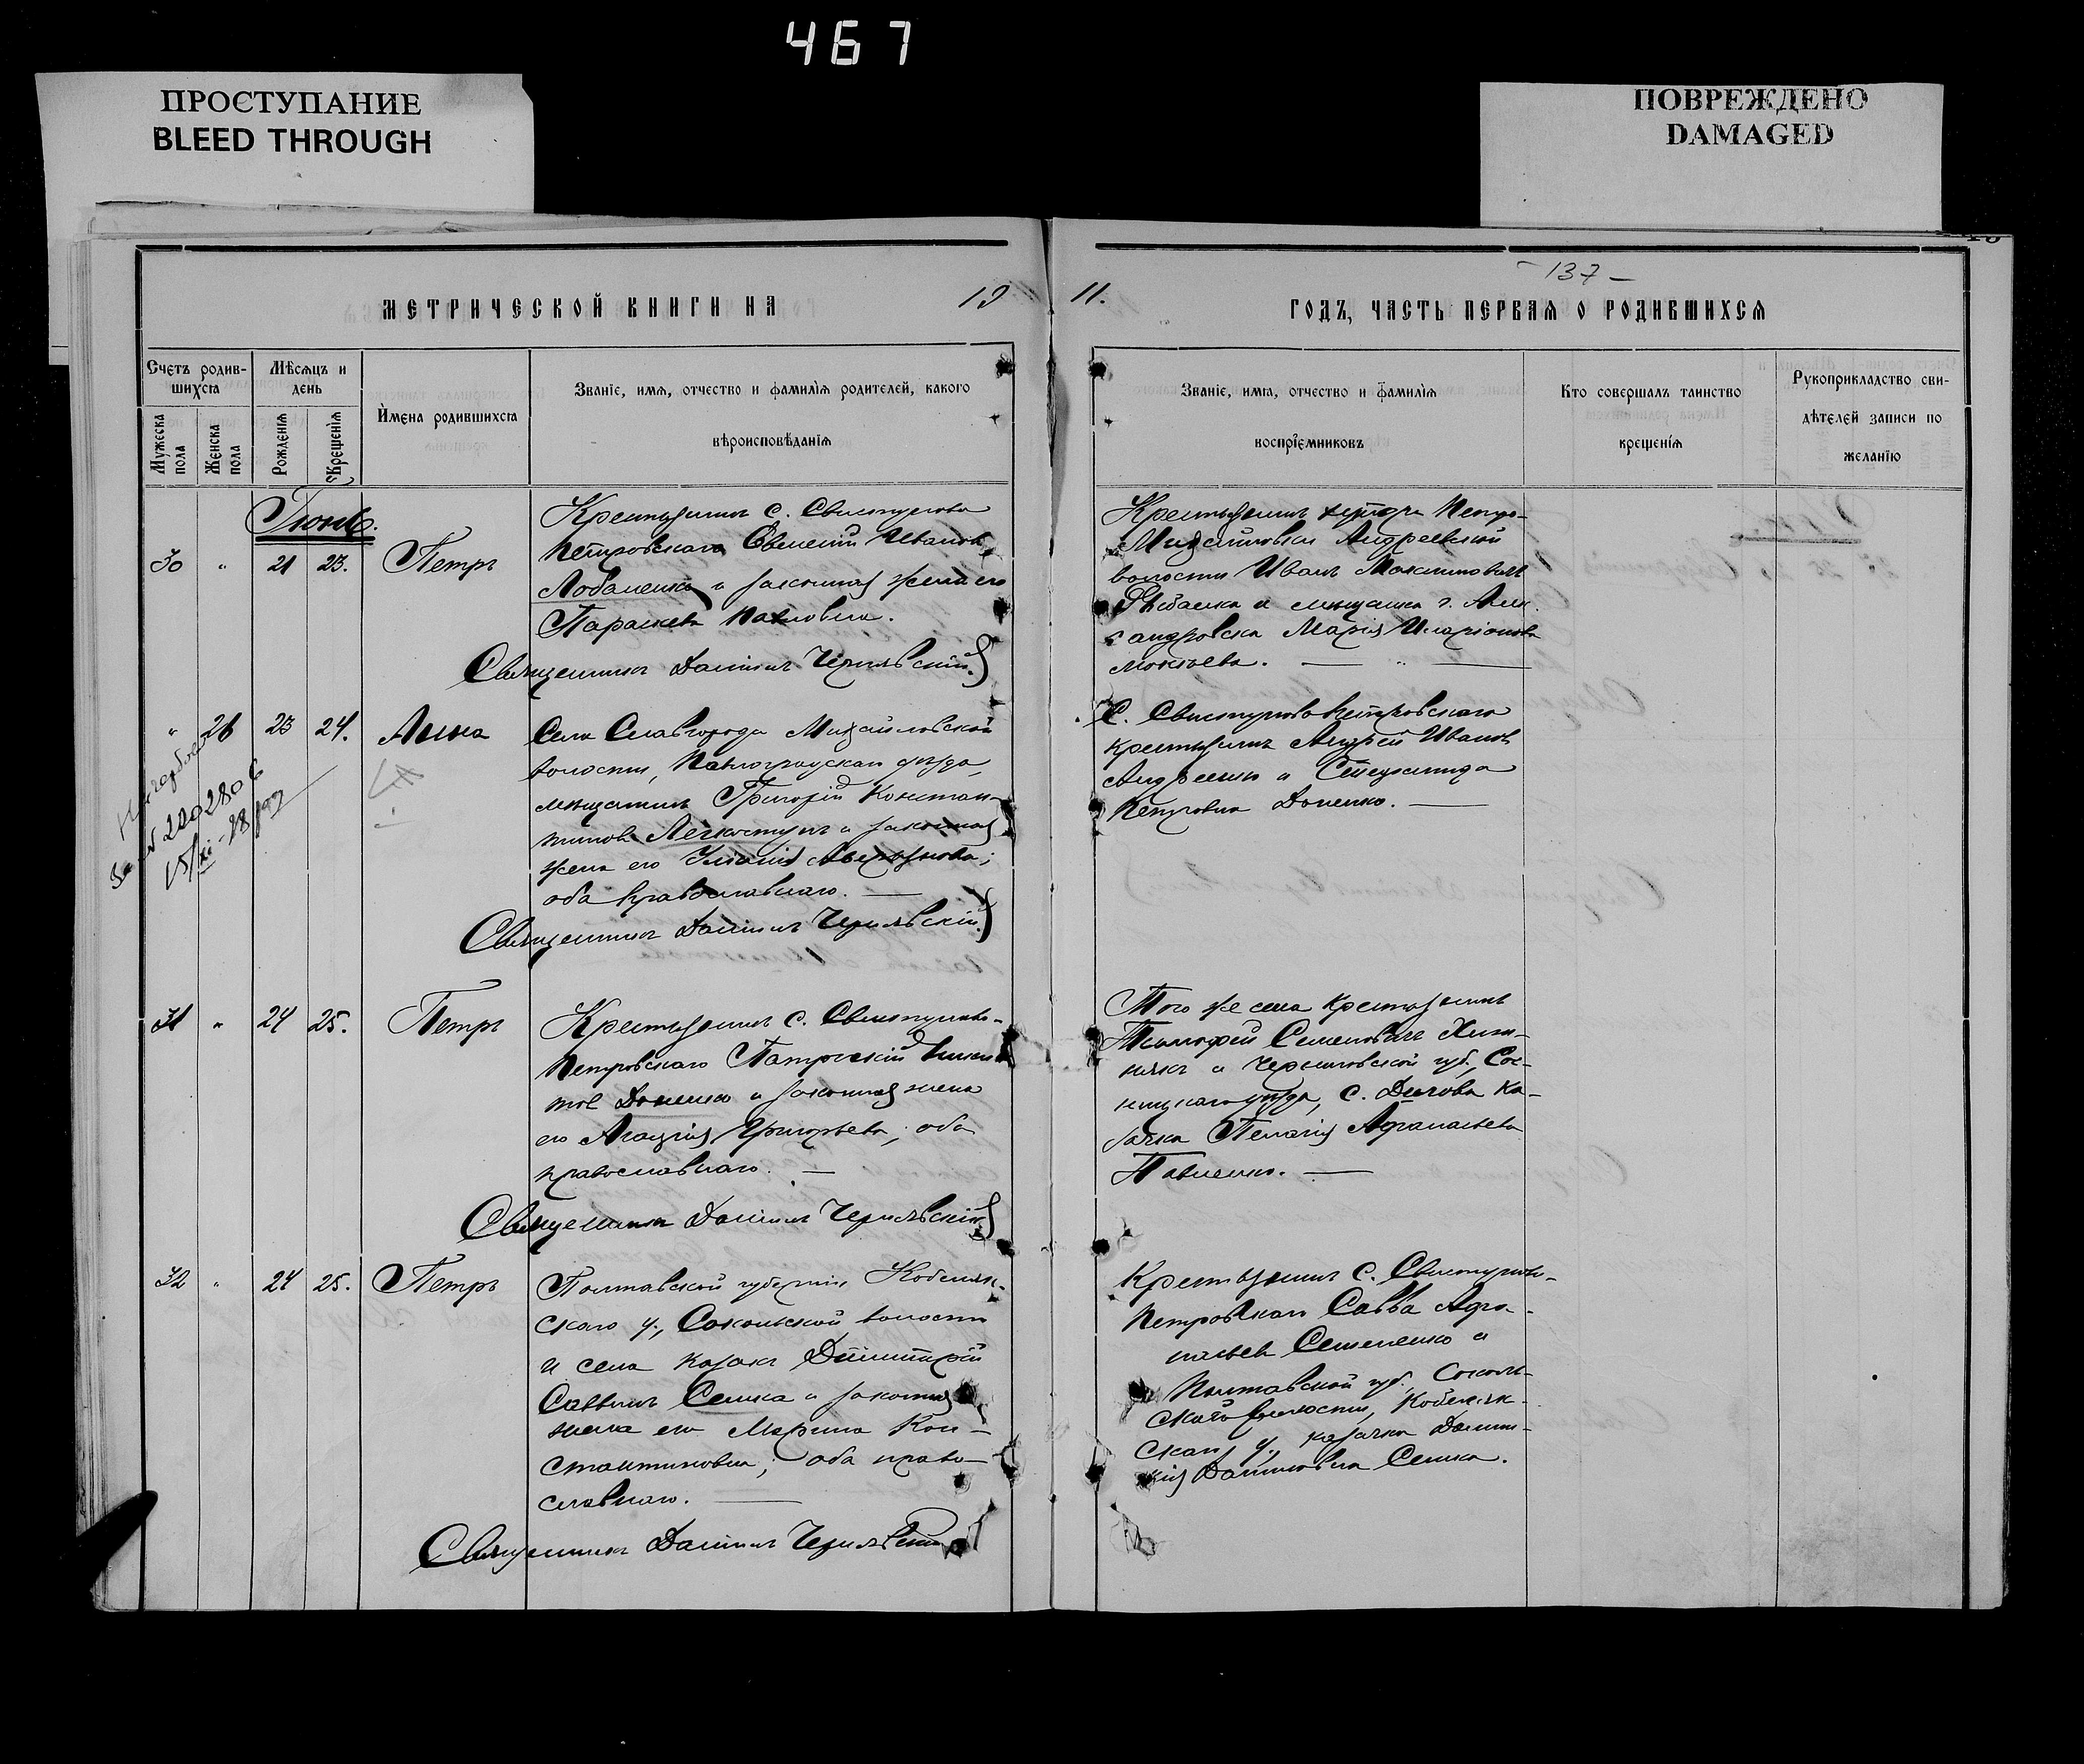 467
ПРОСТУПАНИЕ
BLEED THROUGH
ПОВРЕЖДЕНО
DAMAGED
МЕТРИЧЕСКОЙ КНИГИ НА 19
11.
- 137 -
ГОДЪ, ЧАСТЬ ПЕРВАЯ О РОДИВШИХСЯ
Счетъ родив-
шихся
Мужеска
пола
Женска
пола
Мѣсяцъ и
день
Рожденія
Крещенія
Имена родившихся
Званіе, имя, отчество и фамилія родителей, какого
вѣроисповѣданія
Званіе, имя, отчество и фамилія
воспріемниковъ
Кто совершалъ таинство
крещенія
Рукоприкладство сви-
дѣтелей записи по
желанію
Іюнь.
30 " 21 23. Петръ
Крестьянинъ с. Свистунова
Петровскаго Евменій Ивановъ
Лобаненко и законная жена его
Параскева Павловна.
Священникъ Даніилъ Чернявскій
Крестьянинъ хутора Петро-
Михайловки Андреевской
волости Иванъ Максимовичъ
Рыбалка и мещанка г. Алек-
сандровска Марія Иларіонова
" 26 23 24. Анна
№ 220280
Села Славгорода Михайловской
волости, Павлоградскаго уезда,
мещанинъ Григорій Констан-
тиновъ Легкоступъ и законная
жена его Іуліанія
оба православнаго.
Священникъ Даніилъ Чернявскій
С. Свистуново Петровскаго
крестьянинъ Андрей Ивановъ
Андреенко и Степанида
Петровна Доненко.
31 " 24 25. Петръ
Крестьянинъ с. Свистуново-
Петровскаго Патрикій Ники-
товъ Доненко и законная жена
его Агафія Григорьева; оба
православнаго.
Священникъ Даніилъ Чернявскій
Того же села крестьянинъ
Тимофей Семеновичъ Хиж-
някъ и Черниговской губ., Сос-
ницкаго уезда, с. Дягова ка-
зачка Пелагія Афанасьева
Павленко.
32 " 24 25. Петръ
Полтавской губерніи Кобеляк-
скаго у., Сокольской волости
и села казакъ Димитрій
Саввинъ Сенка и законная
жена его Марина Кон-
стантиновна; оба право-
славнаго.
Священникъ Даніилъ Чернявскій
Крестьянинъ с. Свистуново-
Петровскаго Савва Афа-
насьевъ Семененко и
Полтавской губ. Соколь-
ской волости, Кобеляк-
скаго у., казачка Домни-
кія Даниловна Сенка.